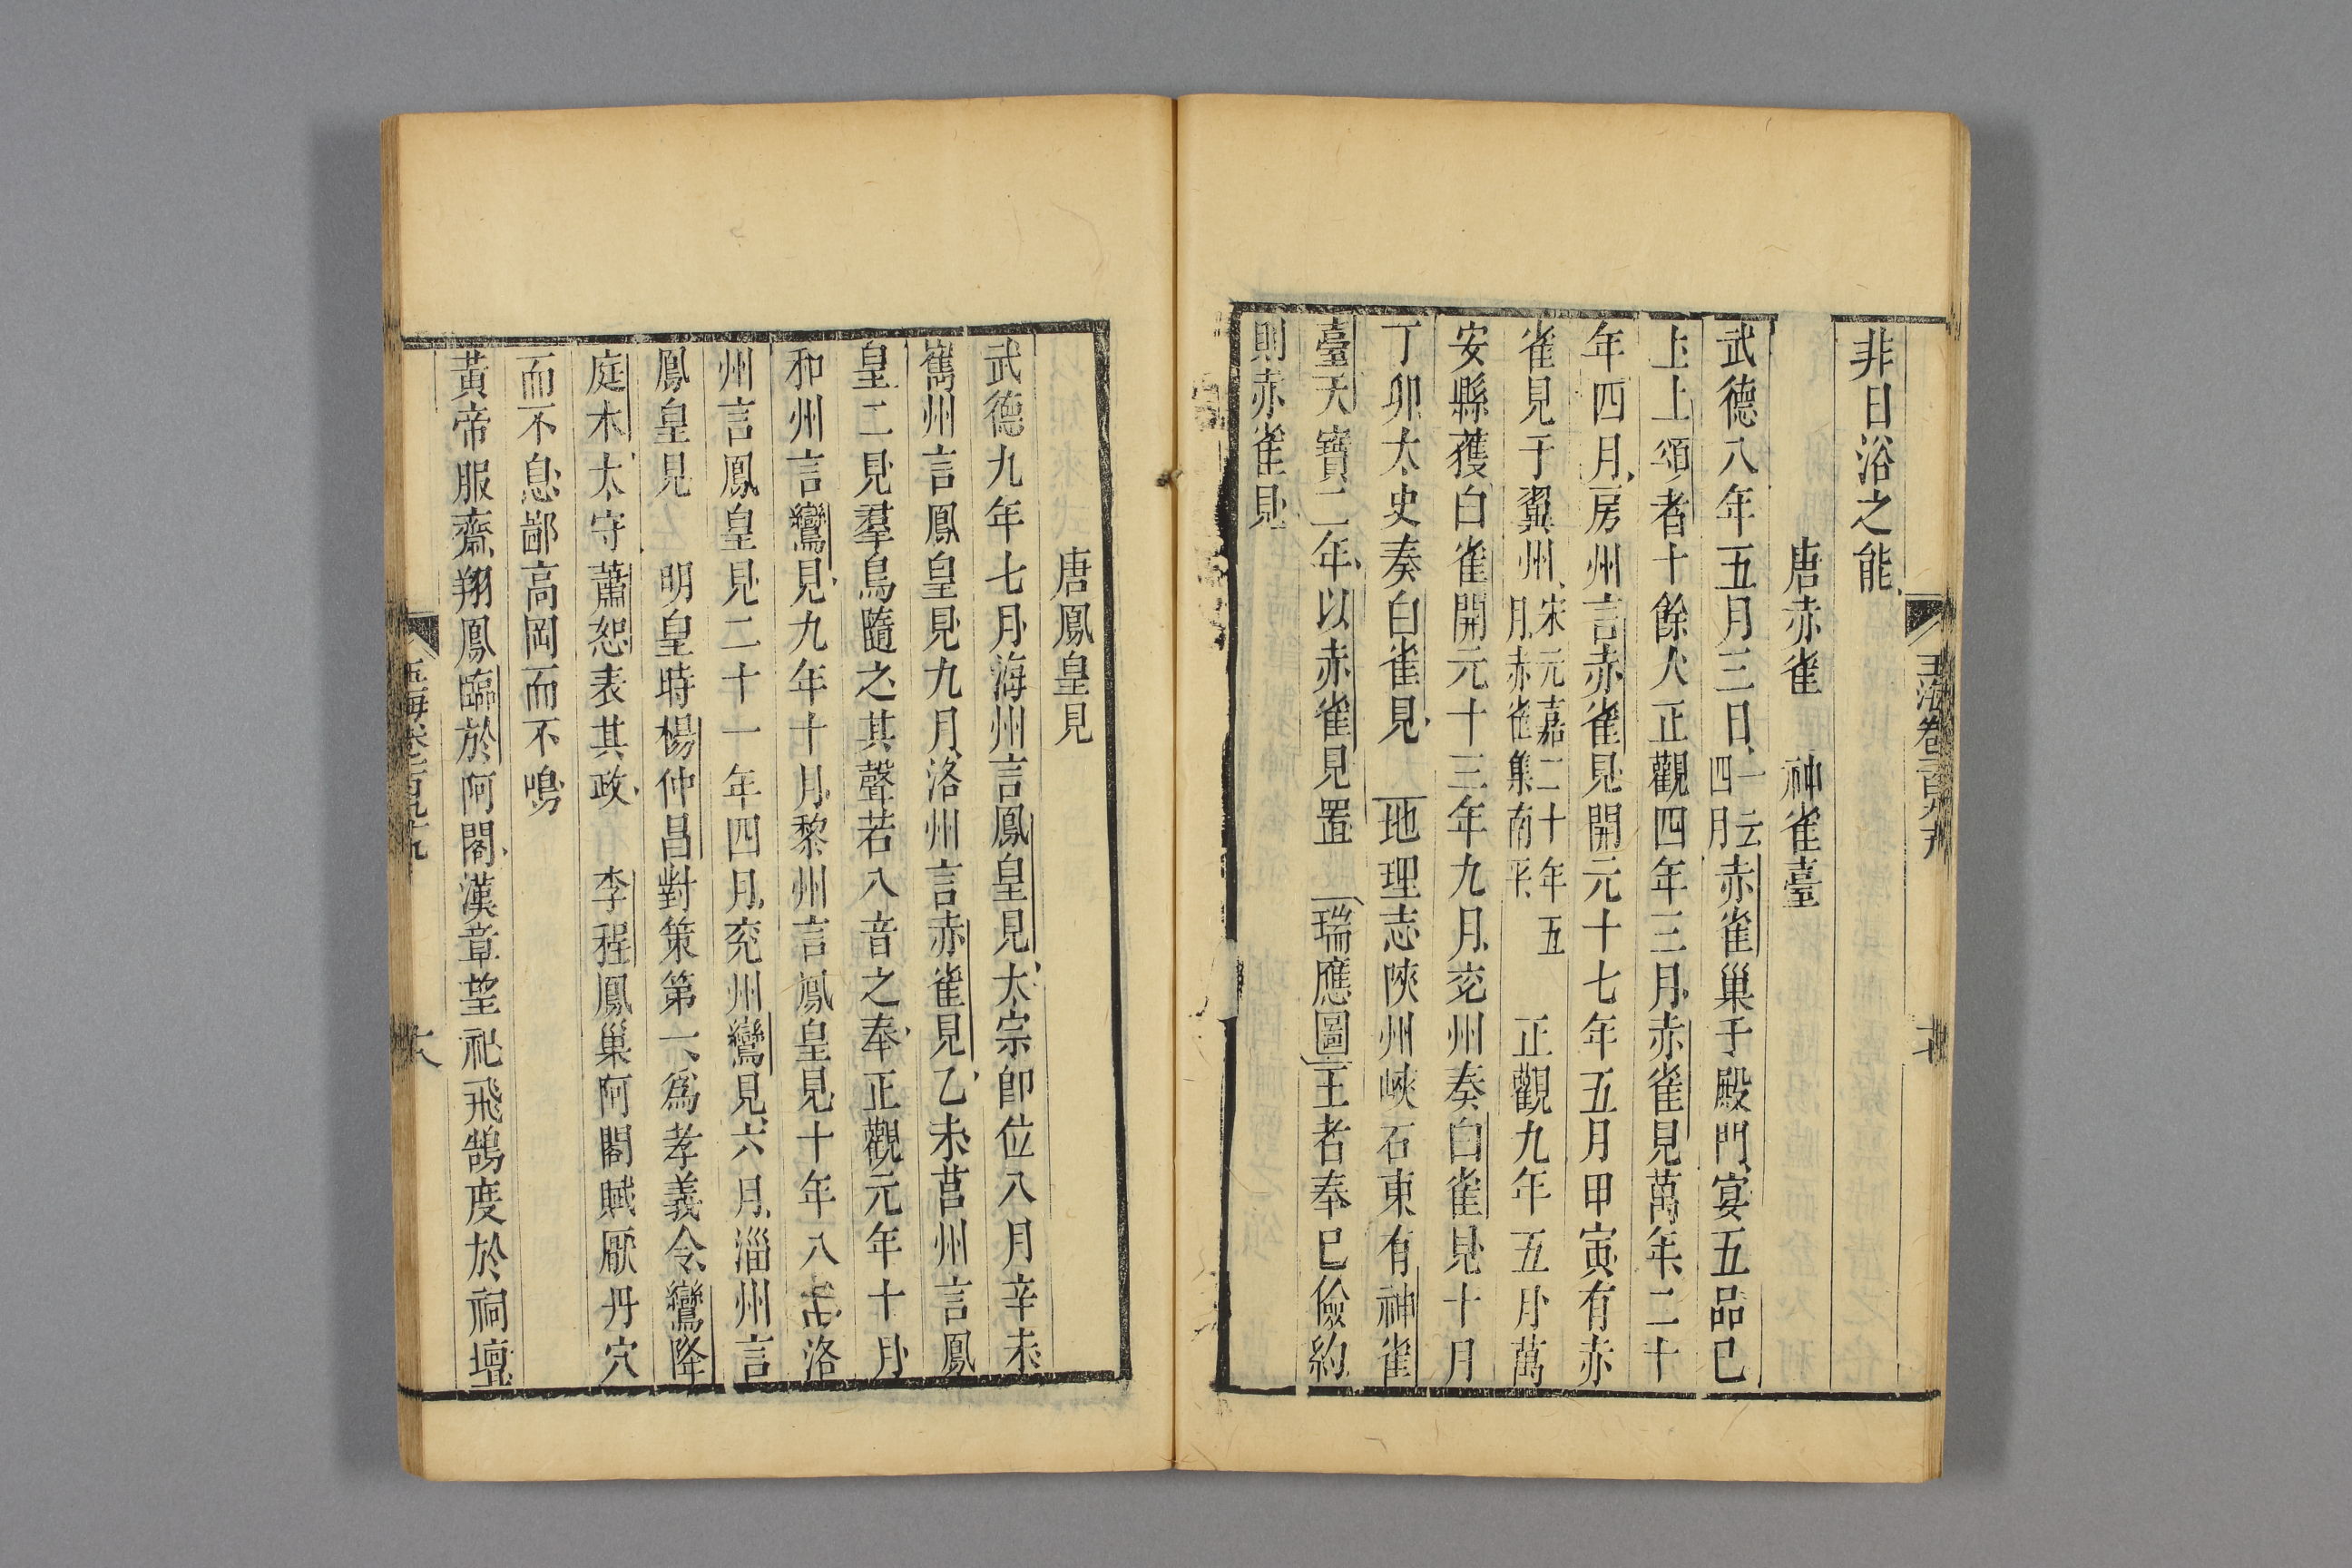 非日浴之能
唐赤雀　神雀臺
武德八年五月三日一云四月赤雀巢于殿門宴五品已
上上頌者十餘人正觀四年三月赤雀見萬年二十
年四月房州言赤雀見開元十七年五月甲寅有赤
雀見于翼州宋元嘉二十年五月赤雀集南平　正觀九年五月萬
安縣獲白雀開元十三年九月兖州奏白雀見十月
丁卯太史奏白雀見　地理志陜州峽石東有神雀
臺天寶二年以赤雀見置　瑞應圖王者奉巳儉約
則赤雀見
唐鳳皇見
武德九年七月海州言鳳皇見太宗卽位八月辛未
巂州言鳳皇見九月洛州言赤雀見乙未莒州言鳳
皇二見羣鳥隨之其聲若八音之奉正觀元年十月
和州言鸞見九年十月黎州言鳳皇見十年八月洛
州言鳳皇見二十一年四月兖州鸞見六月淄州言
鳳皇見　明皇時楊仲昌對策第一爲孝義令鸞降
庭木太守蕭恕表其政　李程鳳巢阿閣賦厭丹穴
而不息鄙高岡而不鳴
黃帝服齋翔鳳臨於阿閣漢章望祀飛鵠度於祠壇